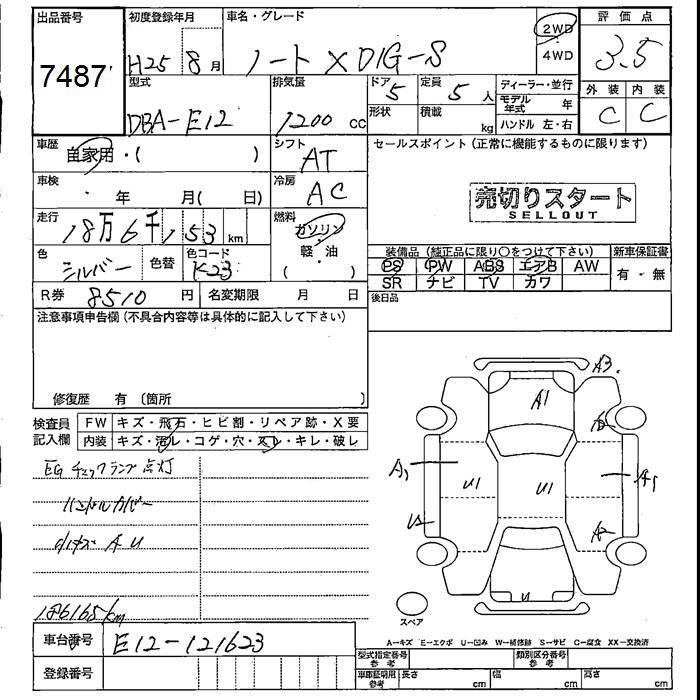 出品番号 初度登録年月 車名・グレード 評価点
7487 H25 8月 ノート X DIG-S 2WD 4WD 3.5
型式 排気量 ドア 定員 ディーラー・並行 外装 内装
DBA-E12 1200 cc 5 5人 モデル年式 年 C C
形状 積載 kg ハンドル 左・右
車歴 自家用・( ) シフト AT セールスポイント (正常に機能するものに限ります)
車検 ・ 年 月( 日) 冷房 AC
売切りスタート
SELLOUT
走行 18万6千153 km 燃料 ガソリン
軽・油
( )
色 シルバー 色替 色コード K23
装備品 (純正品に限り○をつけて下さい) 新車保証書
PS PW ABS エアB AW 有・無
SR ナビ TV カワ
R券 8510 円 名変期限 月 日
後日品
注意事項申告欄 (不具合内容等は具体的に記入して下さい)
修復歴 有 (箇所 )
検査員 FW キズ・飛石・ヒビ割・リペア跡・X要
記入欄 内装 キズ・汚レ・コゲ・穴・スレ・キレ・破レ
EGチェックランプ点灯
ハンドルカバー
小キズ A U
186165km
A3
A1
A1 U1 U1 A1
U
スペア
A-キズ E-エクボ U-凹み W-補修跡 S-サビ C-腐食 XX-交換済
車台番号 E12-121623
型式指定番号 参考 類別区分番号 参考
登録番号
車庫証明用 参考 長さ cm 幅 cm 高さ cm